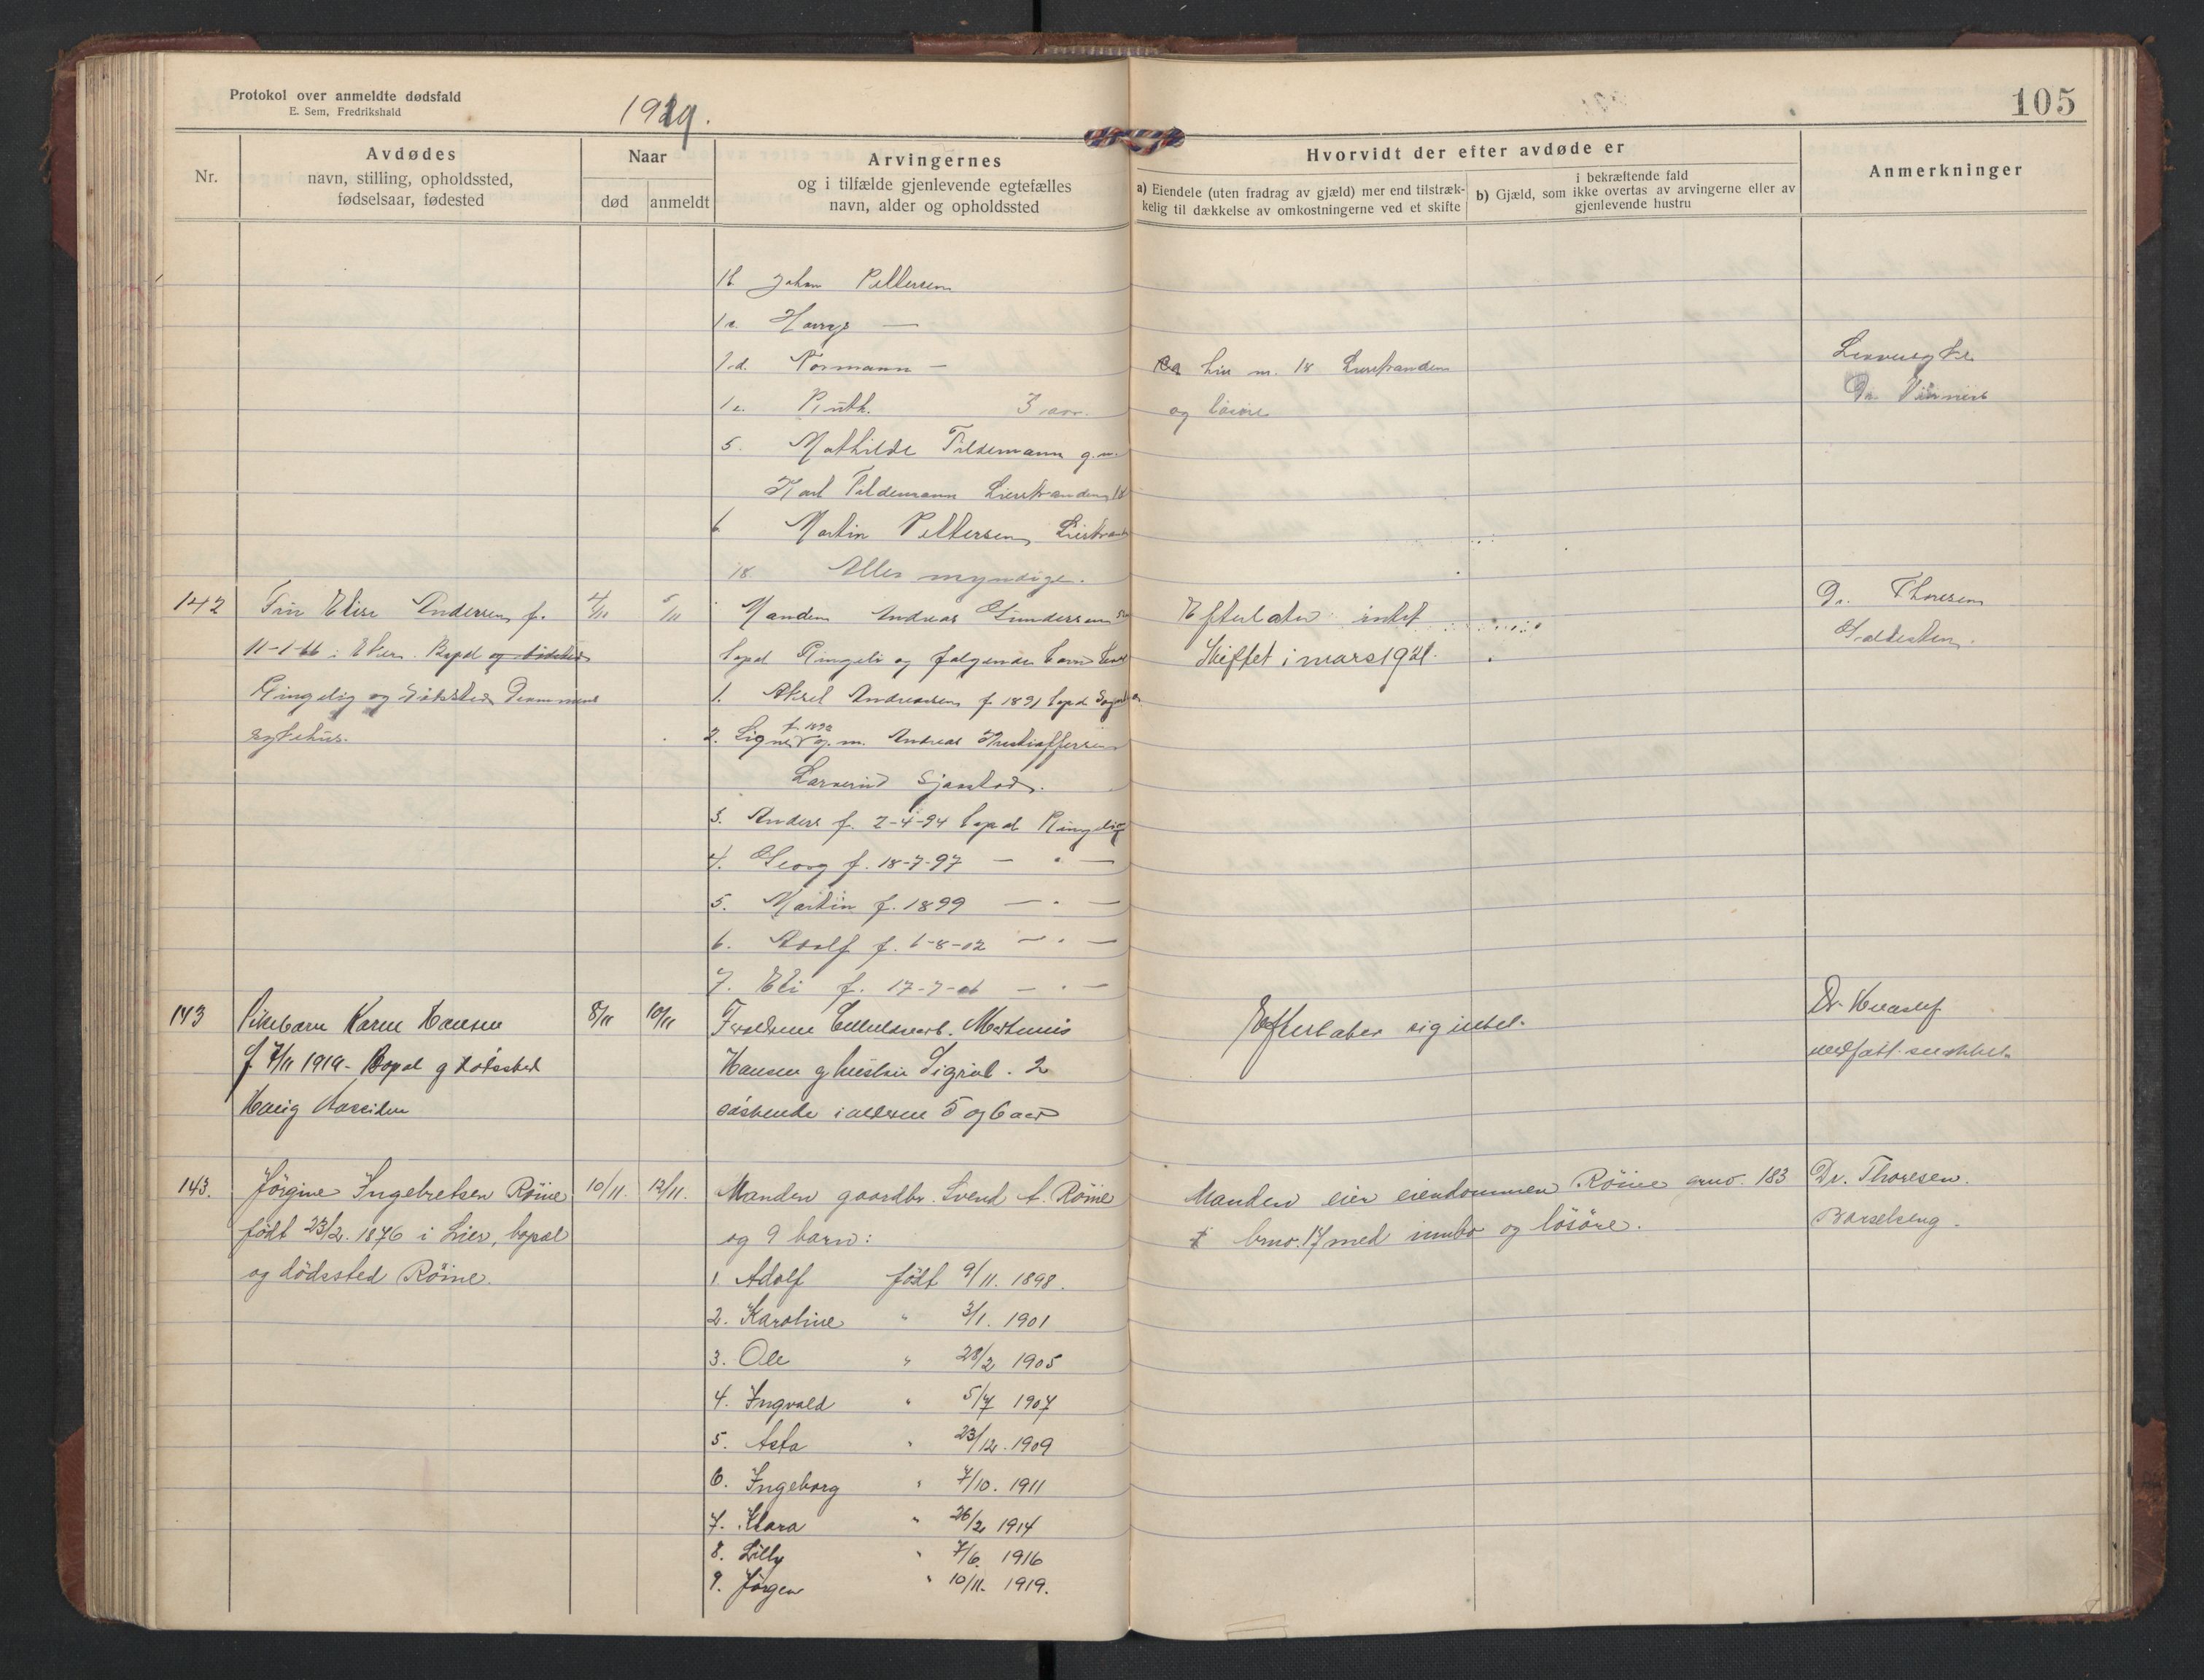 Protokol over anmeldte dødsfald
E. Sem, Fredrikshald
1919.
105
Nr.
Avdødes
navn, stilling, opholdssted,
fødselsaar, fødested
Naar
død
anmeldt
Arvingernes
og i tilfælde gjenlevende egtefælles
navn, alder og opholdssted
Hvorvidt der efter avdøde er
a) Eiendele (uten fradrag av gjæld) mer end tilstræk-
kelig til dækkelse av omkostningerne ved et skifte
i bekræftende fald
b) Gjæld, som ikke overtas av arvingerne eller av
gjenlevende hustru
Anmerkninger
1b Johan Pettersen
1c. Harry —
1.d. Normann —
1e. Ruth. 3 aar.
5. Mathilde Tildemann g.m.
Karl Tildemann Lierstranden 18
6 Martin Pettersen, Lierstrand
18. Alle myndige.
m. 18 Lierstranden
og løsøre
Dr
142
Fru Elise Andersen f.
11-1-66 i Eker. Bopæl og dødssted
Ringelig og dødssted Drammens
sykehus.
4/11
5/11
Manden Andreas Gundersen
bopæl Ringeli og følgende barn
1. Aksel Andreassen f. 1891 bopæl
2. Signe f. 1892 g.m. Andreas Kristoffersen
Sjaastad.
3. Anders f. 2-4-94 bopæl Ringelig
4. Georg f. 18-7-97 — " —
5. Martin f. 1899 — " —
6. Adolf f. 6-8-02 — " —
7. Eli f. 17-7-06 — " —
Efterlater intet
Skiftet i mars 1921.
Dr. Thoresen
Galdesten.
143
Pikebarn Karen Hansen
f 7/11 1919 - Bopæl og dødssted
Haug
8/11
10/11
Forældrene Cellulosearb. Martinius
Hansen og hustru Sigrid. 2
søskende i alderen 5 og 6 aar
Efterlater sig intet.
Dr.
143.
Jörgine Ingebretsen Röine
født 23/2. 1876 i Lier, bopæl
og dödssted Röine.
10/11.
12/11.
Manden gaardbr. Svend A. Röine
og 9 barn:
1. Adolf født 9/11. 1898.
2. Karoline " 3/1. 1901
3. Ole " 28/2 1905
4. Ingvald " 5/7 1907
5. Asta " 23/12. 1909
6. Ingeborg " 7/10. 1911
7. Klara " 26/2 1914
8. Lilly " 7/6. 1916
9. Jörgen " 10/11. 1919.
Manden eier eiendommen Röine gno. 183
bno. 17 med innbo og lösöre.
Dr. Thoresen.
Barselseng.